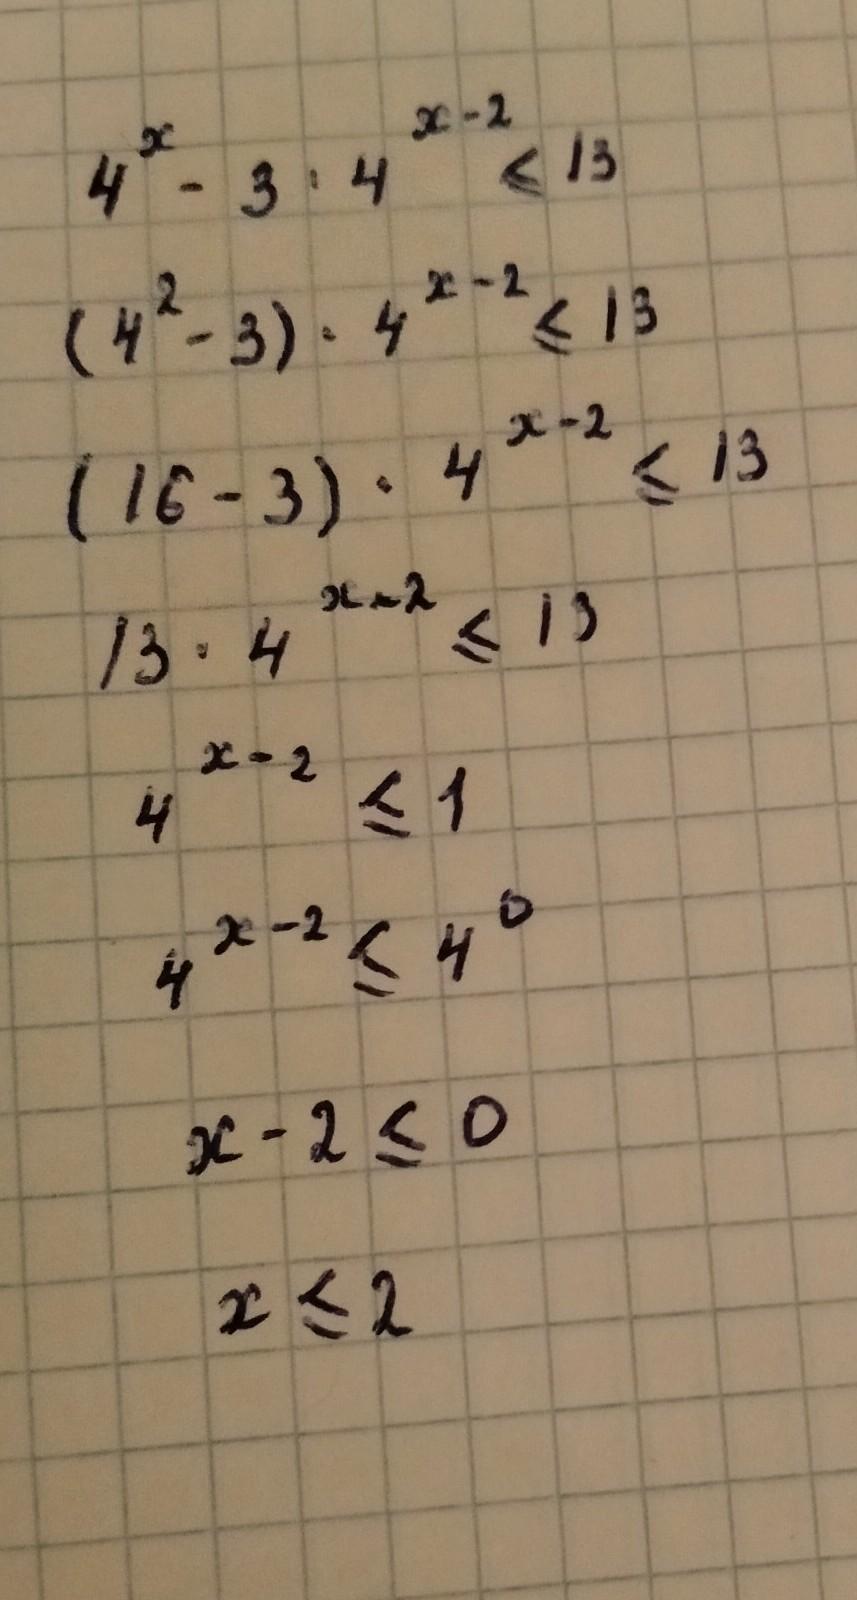 4^x - 3 · 4^(x-2) ≤ 13
(4^2 - 3) · 4^(x-2) ≤ 13
(16 - 3) · 4^(x-2) ≤ 13
13 · 4^(x-2) ≤ 13
4^(x-2) ≤ 1
4^(x-2) ≤ 4^0
x - 2 ≤ 0
x ≤ 2